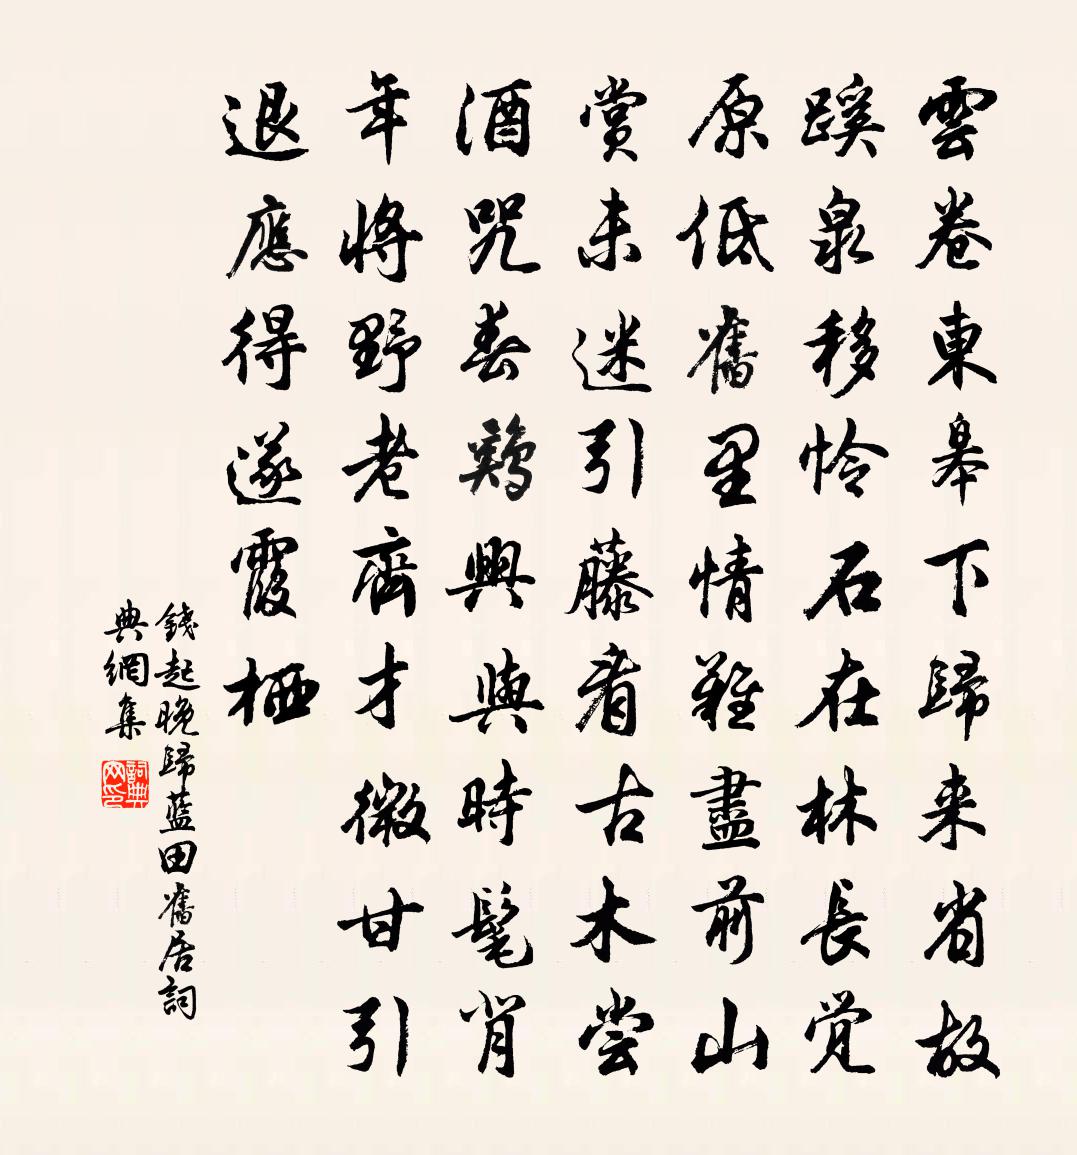 雲卷東皋下歸来省故
蹊泉移怜石在林長觉
原低舊里情難盡前山
賞未迷引藤看古木尝
酒咒春鷄興與時髦背
年将野老齊才微甘引
退應得遂霞栖
錢起晚歸藍田舊居詞
典網集
詞典
网印